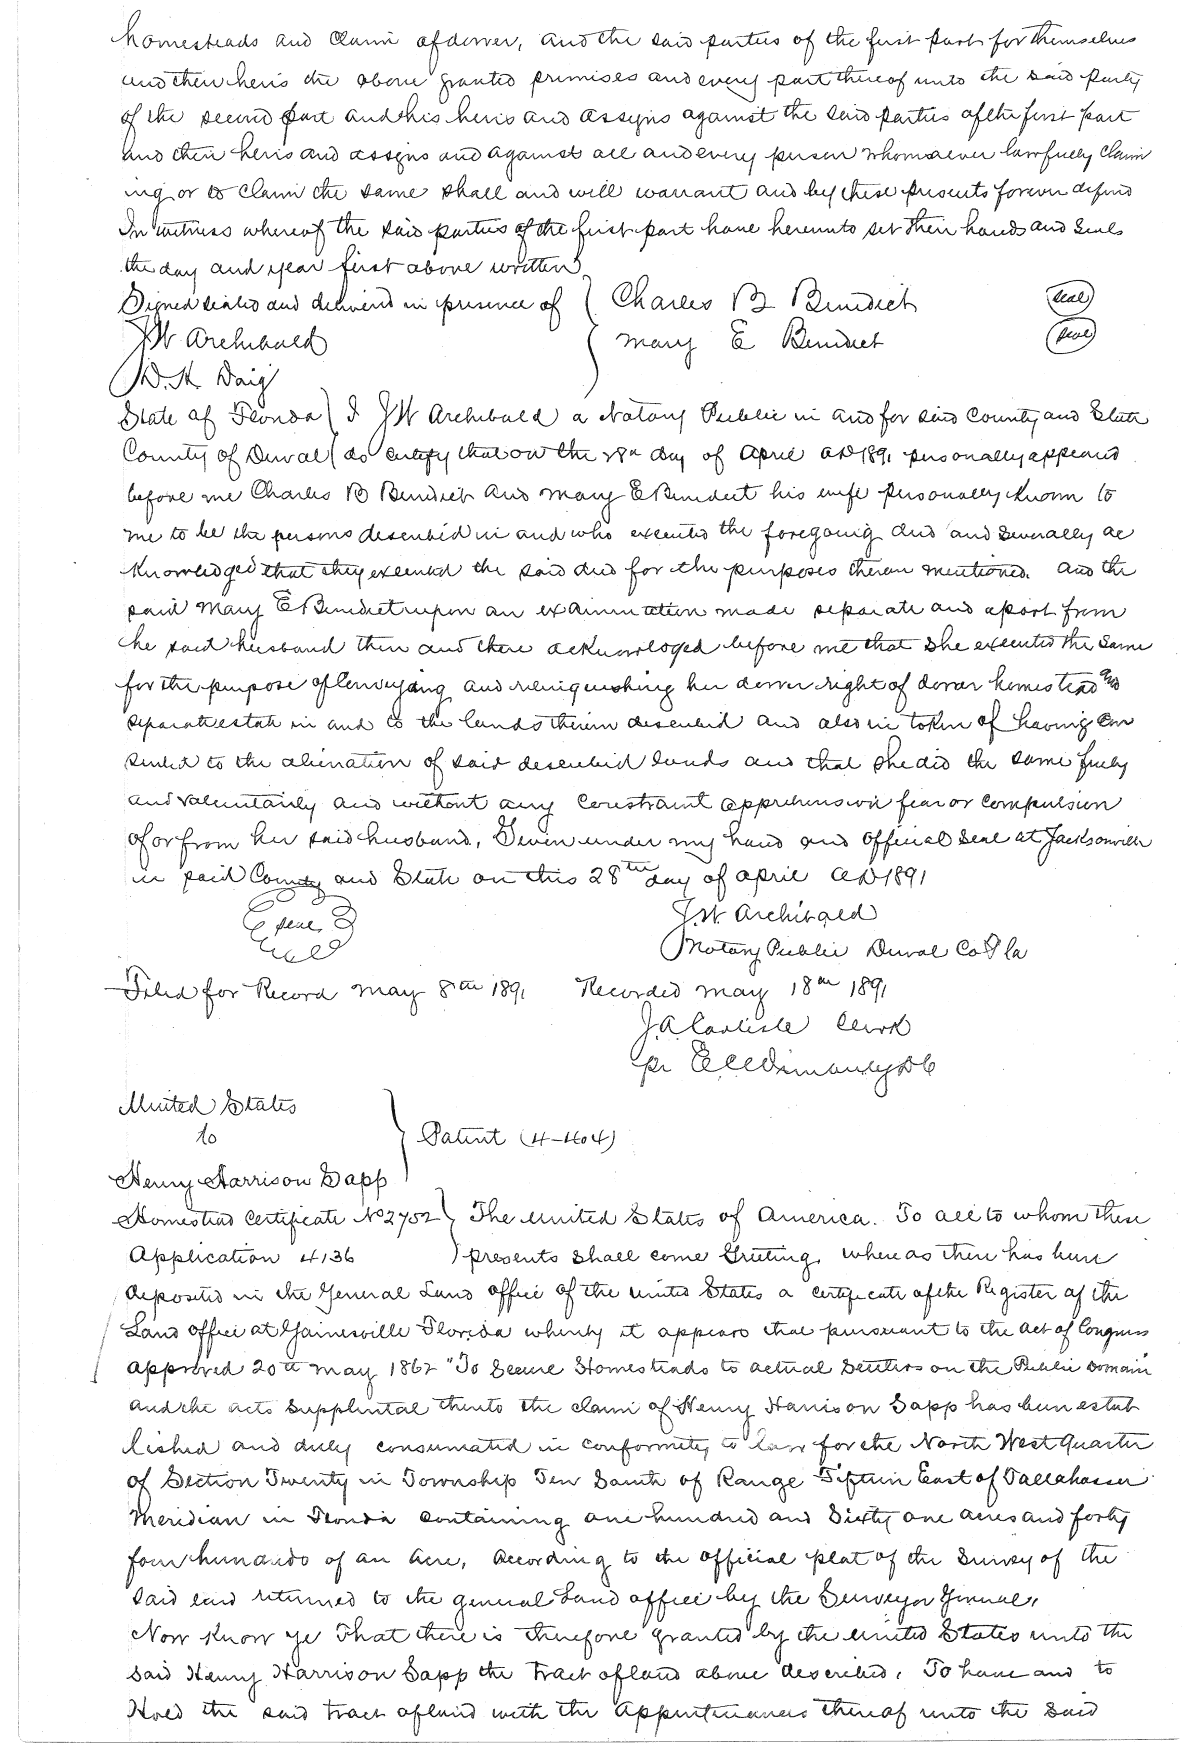 homesteads and claim of dower, and the said parties of the first part for themselves
and their heirs the above granted premises and every part thereof unto the said party
of the second part and his heirs and assigns against the said parties of the first part
and their heirs and assigns and against all and every person whomsoever lawfully claim
ing or to claim the same shall and will warrant and by these presents forever defend
In witness whereof the said parties of the first part have hereunto set their hands and seals
the day and year first above written
Signed sealed and delivered in presence of
Charles B Benedict seal
J W Archibald
Mary E Benedict seal
D. H. Doig
State of Florida I J W Archibald a Notary Public in and for said County and State
County of Duval do certify that on the 28th day of April AD 1891 personally appeared
before me Charles B Benedict and Mary E Benedict his wife personally known to
me to be the persons described in and who executed the foregoing deed and severally ac
knowledged that they executed the said deed for the purposes therein mentioned. And the
said Mary E Benedict upon an examination made separate and apart from
he said husband then and there acknowledged before me that she executed the same
for the purpose of conveying and relinquishing her dower right of dower homestead and
separate estate in and to the lands therein described and also in token of having con
sented to the alienation of said described lands and that she did the same freely
and voluntarily and without any constraint apprehension fear or compulsion
of or from her said husband. Given under my hand and official seal at Jacksonville
in said County and State on this 28th day of April AD 1891
seal
J. W Archibald
Notary Public Duval Co Fla
Filed for Record May 8th 1891 Recorded May 18th 1891
J. A. Carlisle Clerk
pr DC
United States
to
Patent (4-404)
Henry Harrison Sapp
Homestead Certificate No 2752 The United States of America. To all to whom these
Application 4136 presents shall come Greeting, whereas there has been
deposited in the General Land office of the united States a certificate of the Register of the
Land office at Gainesville Florida whereby it appears that pursuant to the act of Congress
approved 20th May 1862 "To Secure Homesteads to actual Settlers on the Public Domain"
and the acts Supplintal thereto the claim of Henry Harrison Sapp has been estab
lished and duly consumated in conformity to law for the North West Quarter
of Section Twenty in Township Ten South of Range Fifteen East of Tallahassee
Meridian in Florida containing one hundred and Sixty one acres and forty
four hundreds of an acre, according to the official plat of the Survey of the
said land returned to the general Land office by the Surveyor General,
Now Know ye That there is therefore granted by the united States unto the
said Henry Harrison Sapp the tract of land above described. To have and to
Hold the said tract of land with the Appurtenances thereof unto the said